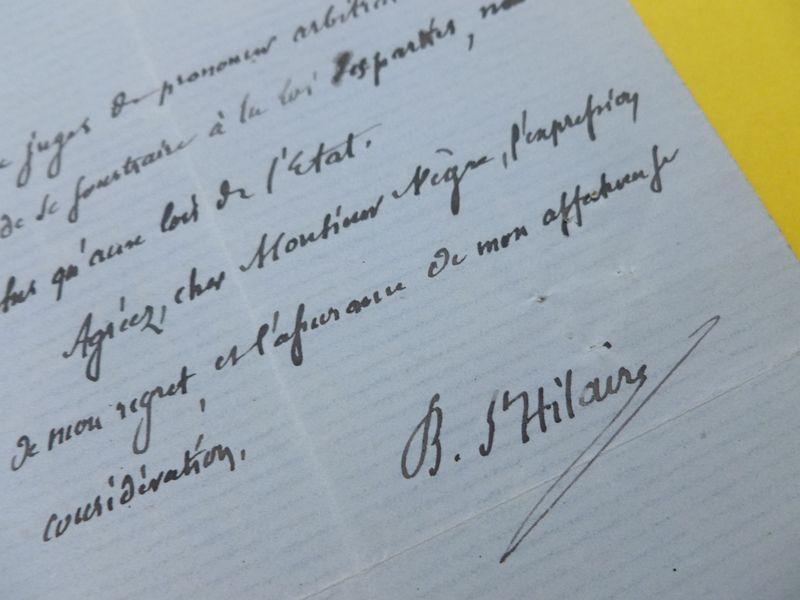 juges de prononcer arbitrai
de se soustraire à la loi des parties, no
plus qu'aux lois de l'Etat.
Agréez, cher Monsieur Nègre, l'expression
de mon regret et l'assurance de mon affectueuse
considération.
B. St Hilaire